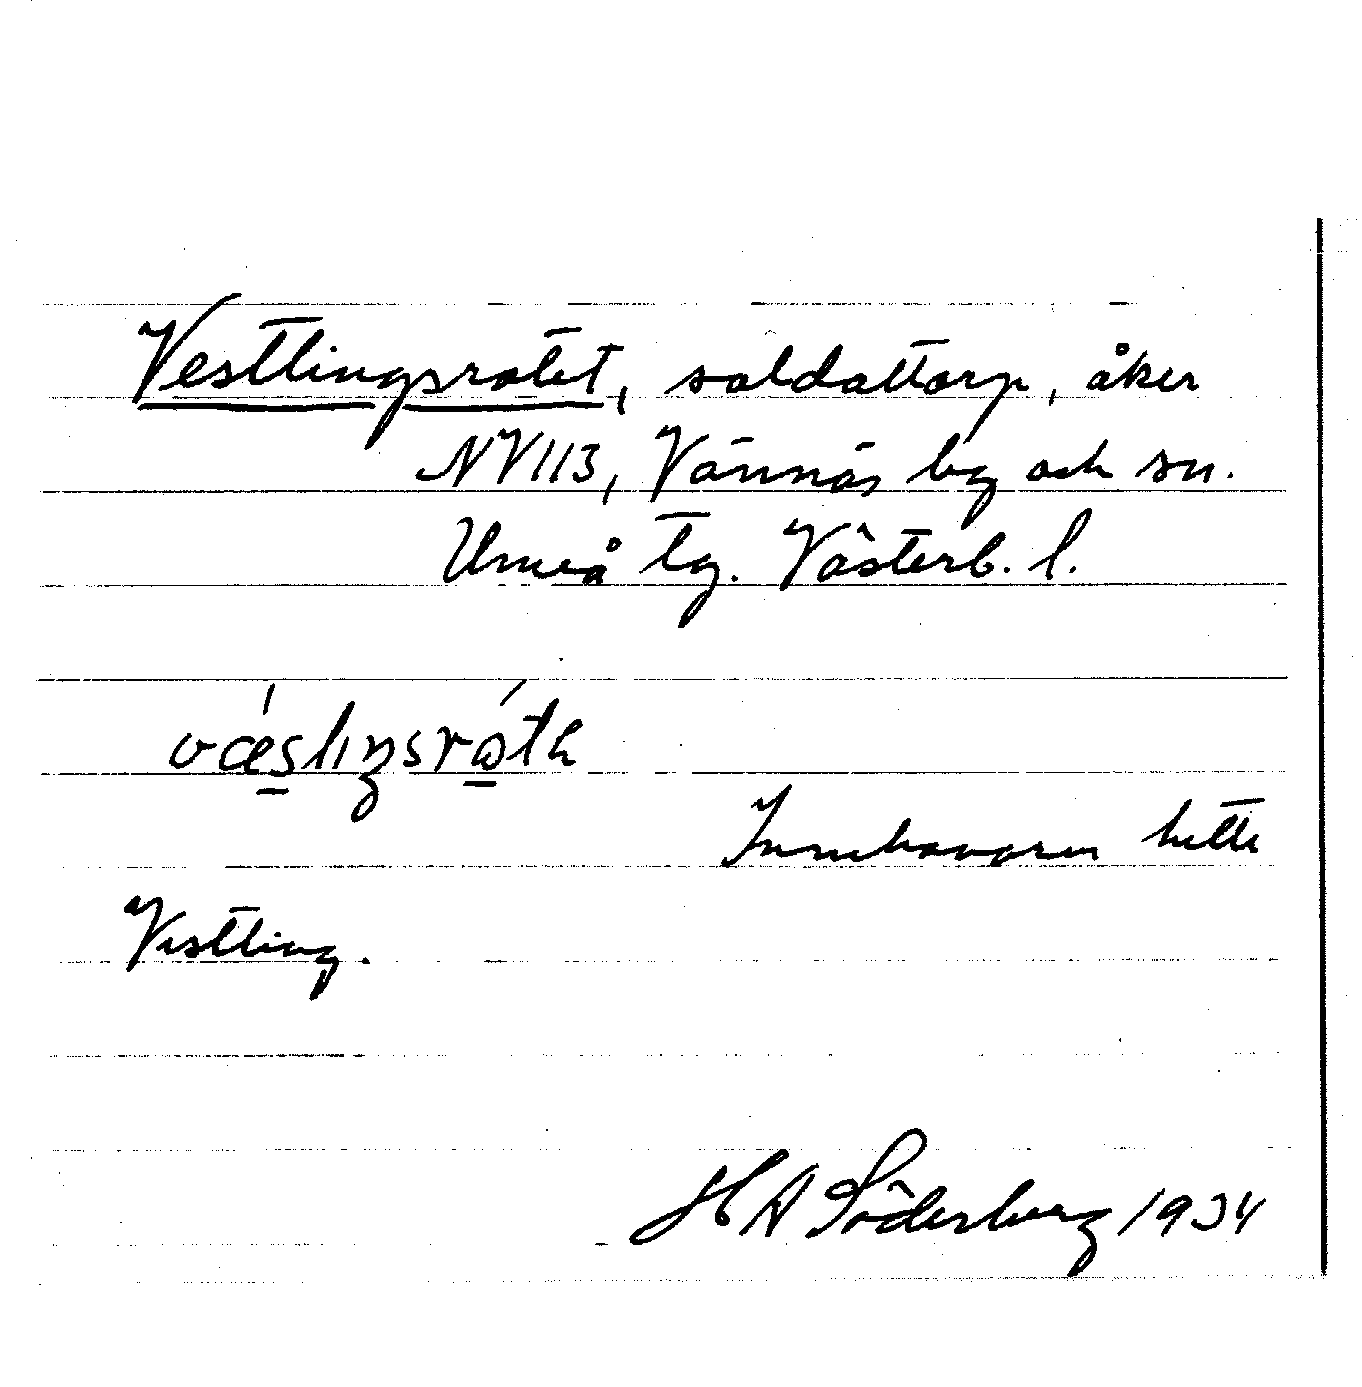 Vestlingsrotet, soldattorp, åker
NV113, Vännäs by och sn.
Umeå tg. Västerb. l.
væslıŋsrotə
Innehavaren hette
Vestling.
H A Söderberg 1934